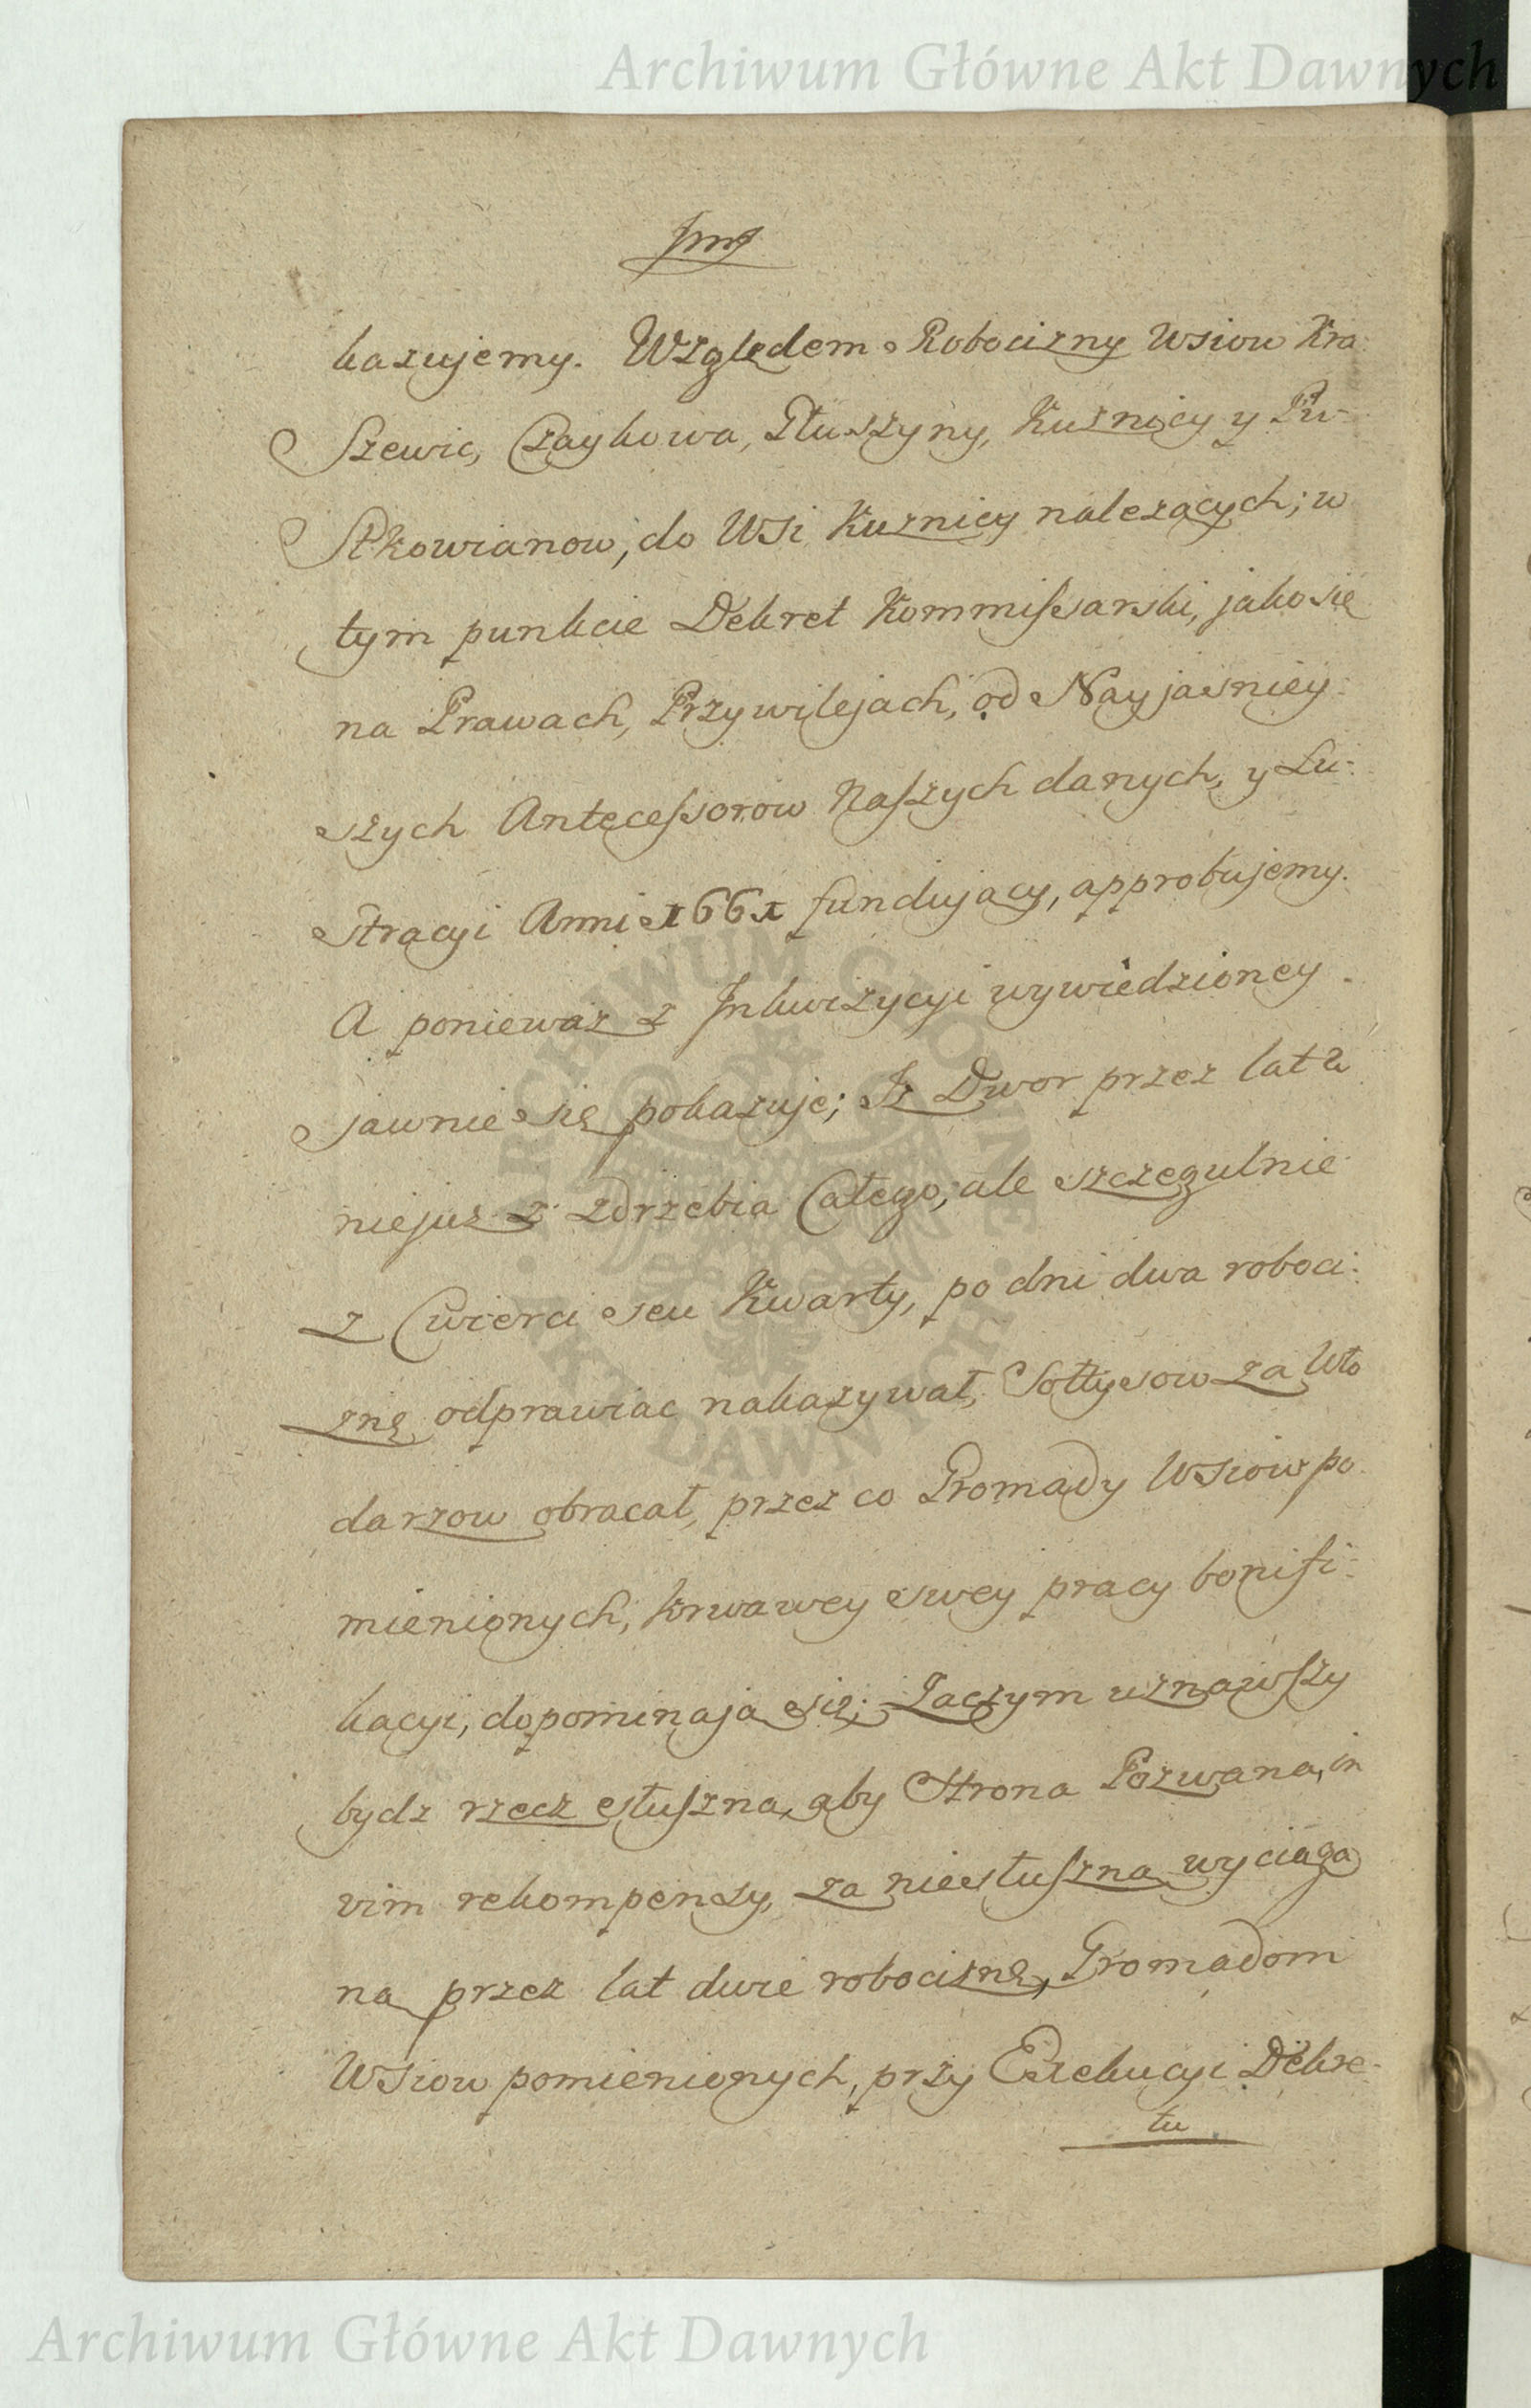 Archiwum Główne Akt Dawnych
kazujemy. Względem Robocizny Wsiow Kra
Szewic, Czaykowa, Płuszyny, Kuznicy y Pu-
Stkowianow, do Wsi Kuznicy nalezących; w
tym punkcie Dekret Kommissarski, jako się
na Prawach, Przywilejach, od Nayjasniey
szych Antecessorow Naszych danych, y Lu-
stracyi Anni 1661 fundujący, approbujemy.
A poniewaz z Inkwizycyi wywiedzioney
jawnie się pokazuje; Iz Dwor przez lat 2
niejuz z Zdrzebia Całego, ale szczegulnie
z Cwierci seu Kwarty, po dni dwa roboci-
znę odprawiac nakazywał, Sołtysow za Wło
darzow obracał, przez co Gromady Wsiow po
mienionych, krwawey swey pracy bonifi-
kacyi, dopominaja się; Zaczym uznawszy
bydz rzecz słuszna, aby Strona Pozwana, in
vim rekompensy, za niesłuszna wyciąga
na przez lat dwie robociznę, Gromadom
Wsiow pomienionych, przy Exekucyi Dekre-
tu
ARCHIWUM GŁÓWNE AKT DAWNYCH
Archiwum Główne Akt Dawnych